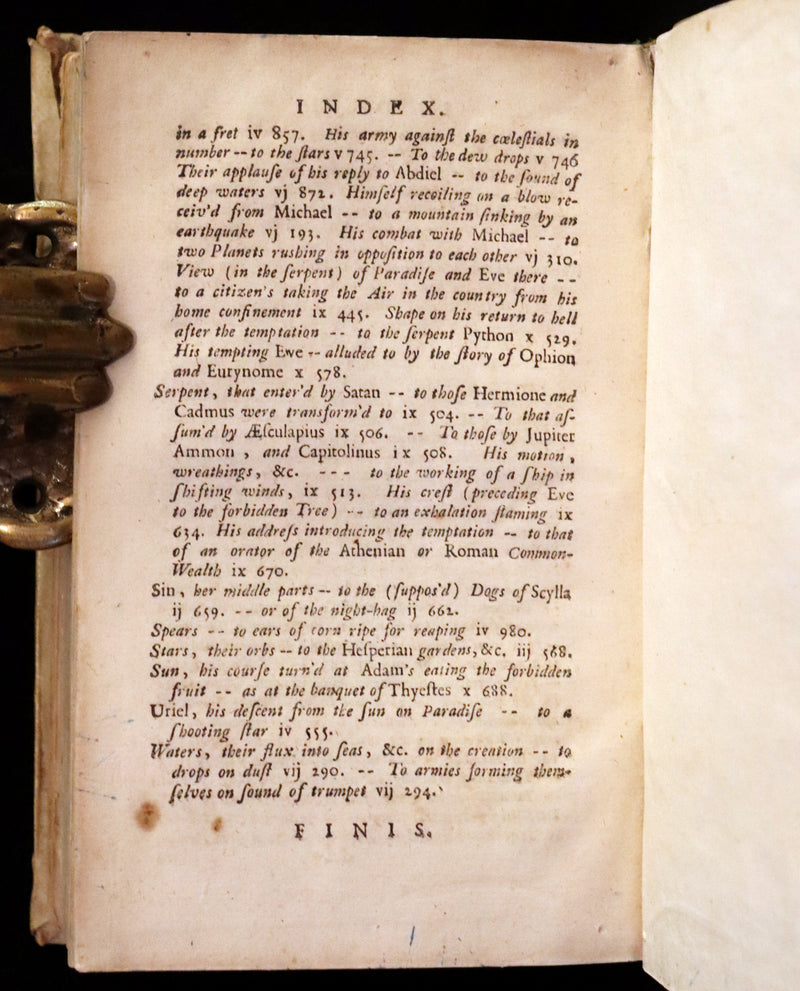 INDEX.
in a fret iv 857. His army againſt the cœleſtials in
number -- to the ſtars v 745. -- To the dew drops v 746
Their applauſe of his reply to Abdiel -- to the ſound of
deep waters vj 872. Himſelf recoiling on a blow re-
ceiv'd from Michael -- to a mountain ſinking by an
earthquake vj 193. His combat with Michael -- to
two Planets rushing in oppoſition to each other vj 310.
View (in the ſerpent) of Paradiſe and Eve there --
to a citizen's taking the Air in the country from his
home confinement ix 445. Shape on his return to hell
after the temptation -- to the ſerpent Python x 529.
His tempting Eve -- alluded to by the ſtory of Ophion
and Eurynome x 578.
Serpent, that enter'd by Satan -- to thoſe Hermione and
Cadmus were transform'd to ix 504. -- To that aſ-
ſum'd by Æſculapius ix 506. -- To thoſe by Jupiter
Ammon, and Capitolinus ix 508. His motion,
wreathings, &c. --- to the working of a ſhip in
ſhifting winds, ix 513. His creſt (preceding Eve
to the forbidden Tree) -- to an exhalation flaming ix
634. His addreſs introducing the temptation -- to that
of an orator of the Athenian or Roman Common-
Wealth ix 670.
Sin, her middle parts -- to the (ſuppos'd) Dogs of Scylla
ij 659. -- or of the night-hag ij 662.
Spears -- to ears of corn ripe for reaping iv 980.
Stars, their orbs -- to the Heſperian gardens, &c. iij 568.
Sun, his courſe turn'd at Adam's eating the forbidden
fruit -- as at the banquet of Thyeſtes x 688.
Uriel, his deſcent from the ſun on Paradiſe -- to a
ſhooting ſtar iv 555.
Waters, their flux into ſeas, &c. on the creation -- to
drops on duſt vij 290. -- To armies forming them-
ſelves on ſound of trumpet vij 294.
FINIS.